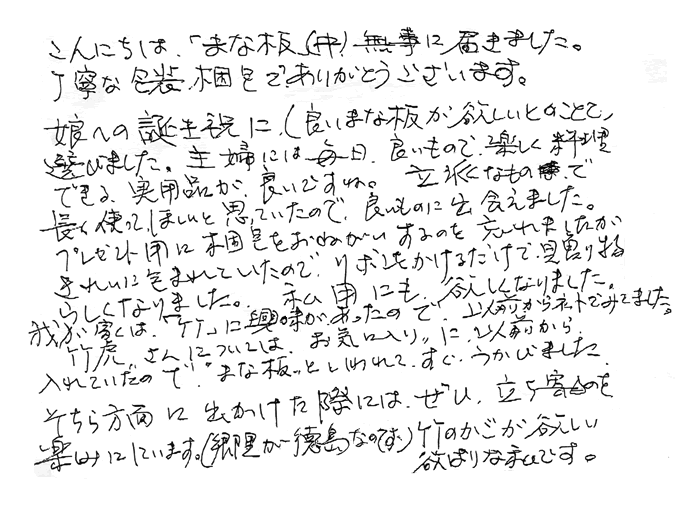 こんにちは、「まな板(中)無事に届きました。
丁寧な包装、梱包でありがとうございます。
娘への誕生祝に、(良いまな板が欲しいとのことで、
選びました。主婦には毎日、良いもので、楽しく料理
できる、実用品が、良いですね。立派なもので
長く使ってほしいと思っていたので、良いものに出会えました。
プレゼント用に梱包をおねがいするのを忘れましたが
きれいに包まれていたので、リボンをかけるだけで贈り物
らしくなりました。私用にも、欲しくなりました。
我が家では、「竹」に興味があったので、以前からネットでみてました。
竹虎さんについては、お気に入り〟に、以前から
入れていたので〝まな板〟といわれて、すぐ、うかびました
そちら方面に出かけた際には、ぜひ、立ち寄るのを
楽みにしています。(郷里が徳島なのです)竹のかごが欲しい
欲ばりな私です。